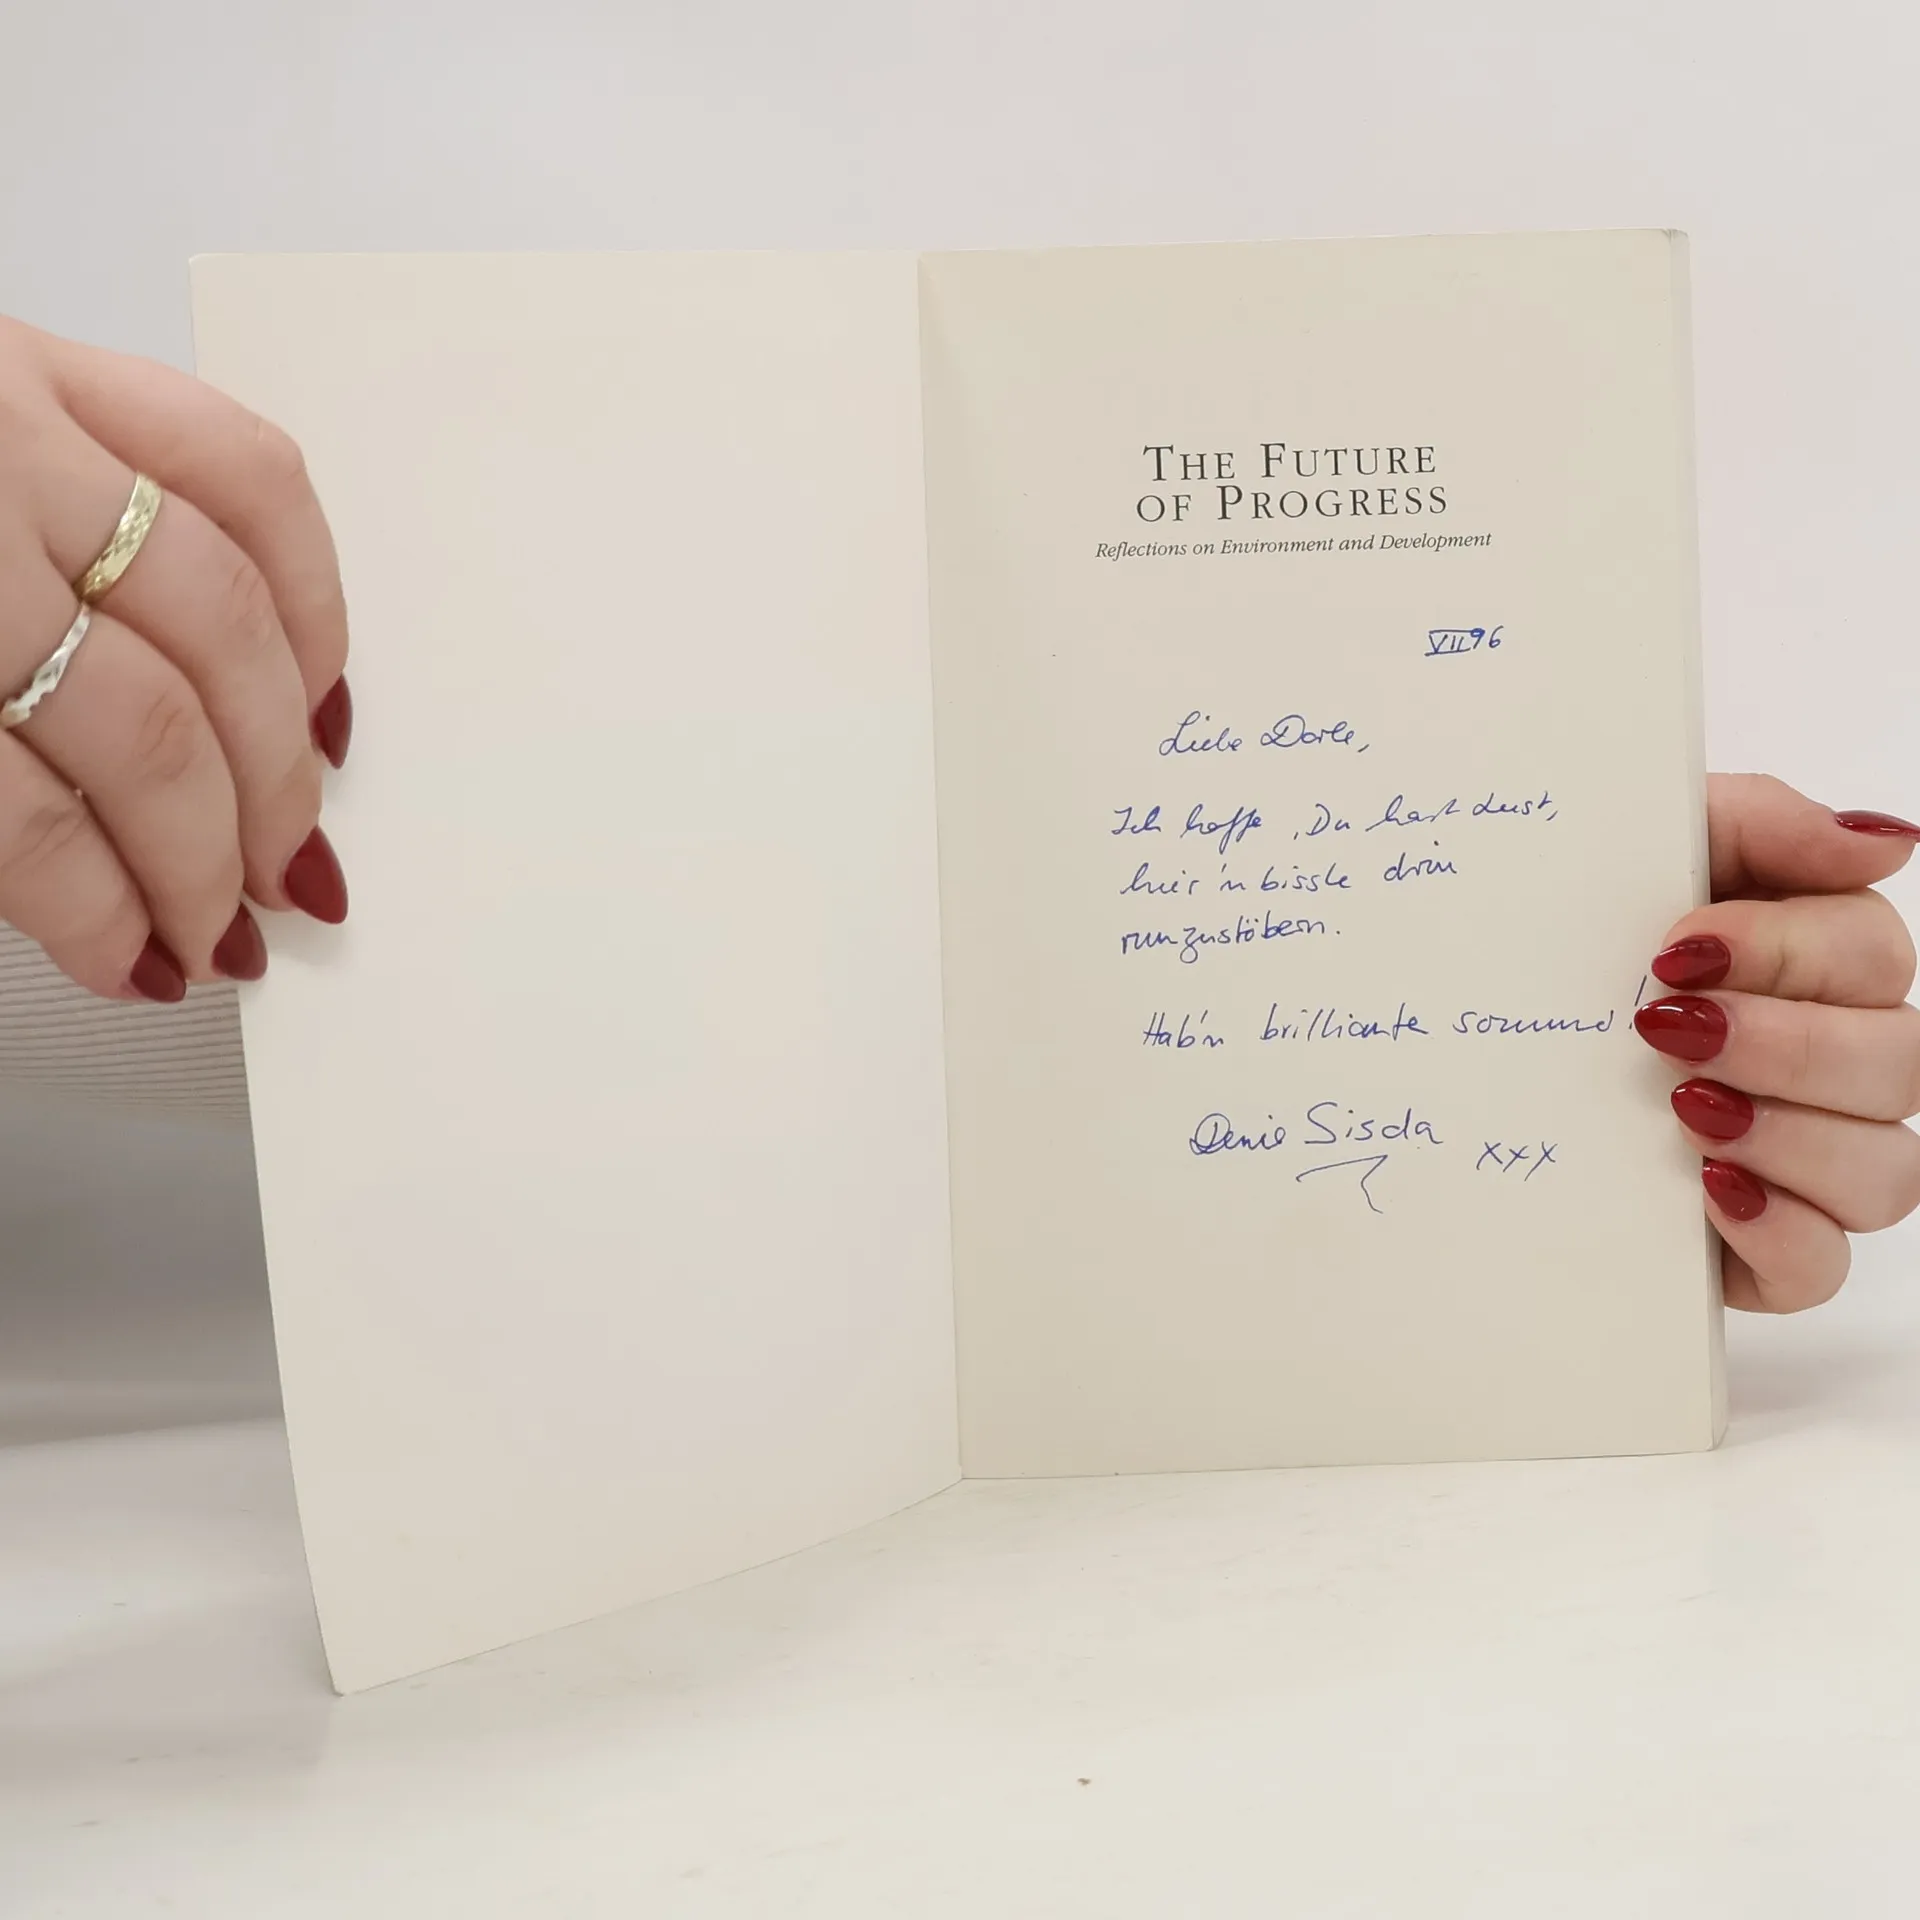 THE FUTURE
OF PROGRESS
Reflections on Environment and Development
VII 96
Liebe Dorle,
Ich hoffe, Du hast Lust,
hier 'n bissle drin
rumzustöbern.
Hab'n brilliante Sommer!
Sisda
xxx